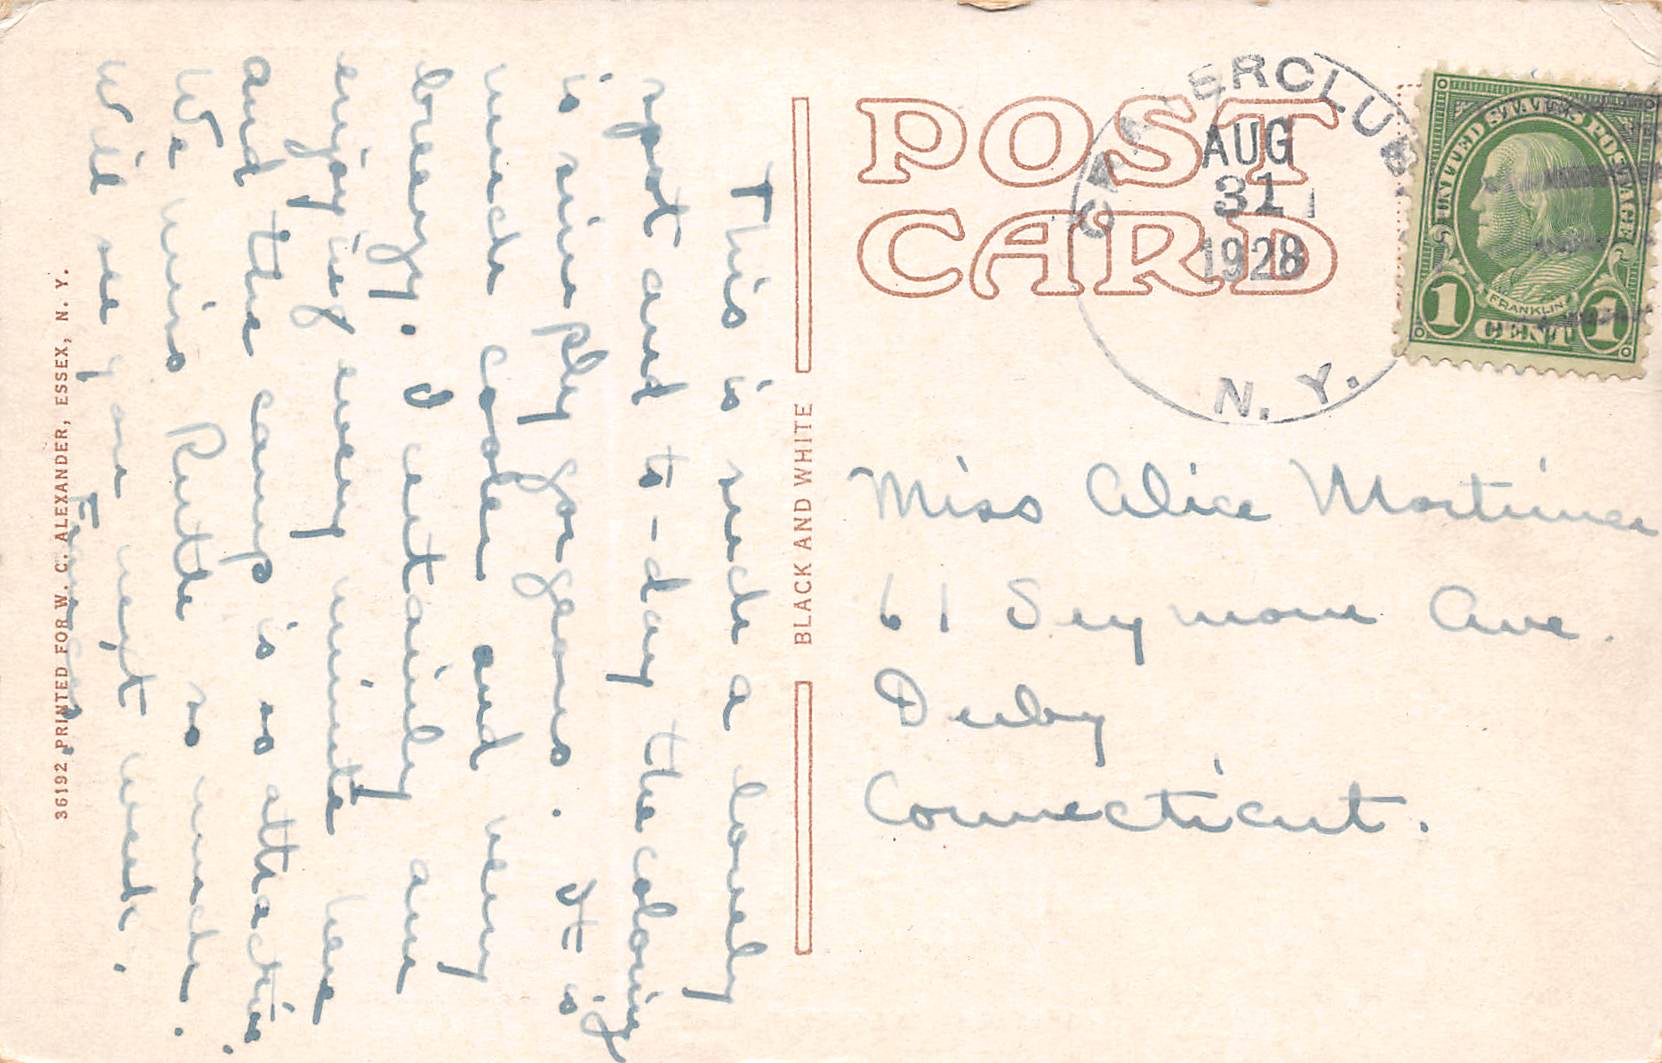 This is such a lovely
spot and to-day the coloring
is simply gorgeous. It is
much cooler and very
breezy. I certainly am
enjoying every minute here
and the camp is so attractive.
We miss Ruth so much.
Will see you next week.
36192 PRINTED FOR W. C. ALEXANDER, ESSEX, N. Y.
BLACK AND WHITE
POST
CARD
AUG
31
1928
N. Y.
UNITED STATES POSTAGE
FRANKLIN
1 CENT 1
Miss Alice Mortimer
61 Seymour Ave.
Derby
Connecticut.